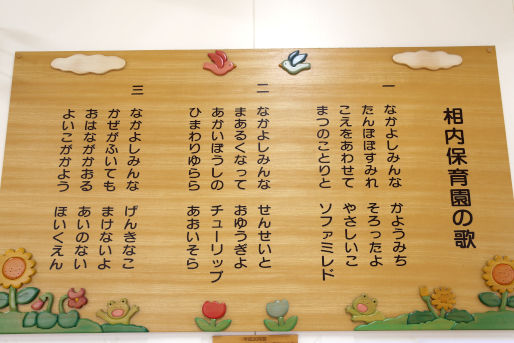 相内保育園の歌
一
なかよしみんな かようみち
たんぽぽすみれ そろったよ
こえをあわせて やさしいこ
まつのことりと ソファミレド
二
なかよしみんな せんせいと
まあるくなって おゆうぎよ
あかいぼうしの チューリップ
ひまわりゆらら あおいそら
三
なかよしみんな げんきなこ
かぜがふいても まけないよ
おはながかおる あいのない
よいこがかよう ほいくえん